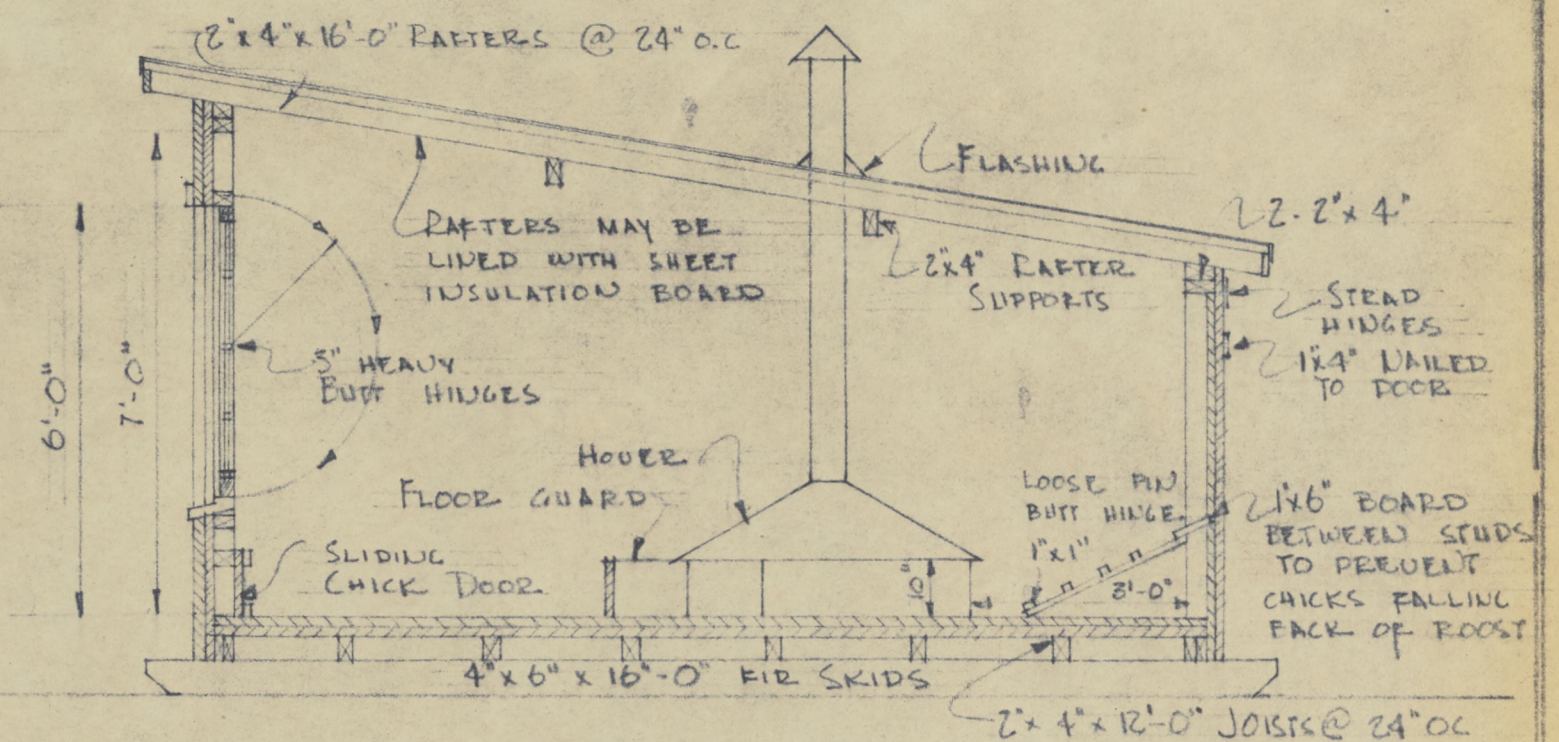 2"x 4"x 16'-0" RAFTERS @ 24" O.C
FLASHING
2-2"x 4"
RAFTERS MAY BE
LINED WITH SHEET
INSULATION BOARD
2"x4" RAFTER
SUPPORTS
STRAP
HINGES
1"x4" NAILED
TO DOOR
6'-0"
7'-0"
3" HEAVY
BUTT HINGES
HOVER
FLOOR GUARD
LOOSE PIN
BUTT HINGE
1"x1"
3'-0"
1"x6" BOARD
BETWEEN STUDS
TO PREVENT
CHICKS FALLING
BACK OF ROOST
SLIDING
CHICK DOOR
4"x 6" x 16'-0" FIR SKIDS
2"x 4"x 12'-0" JOISTS @ 24" OC